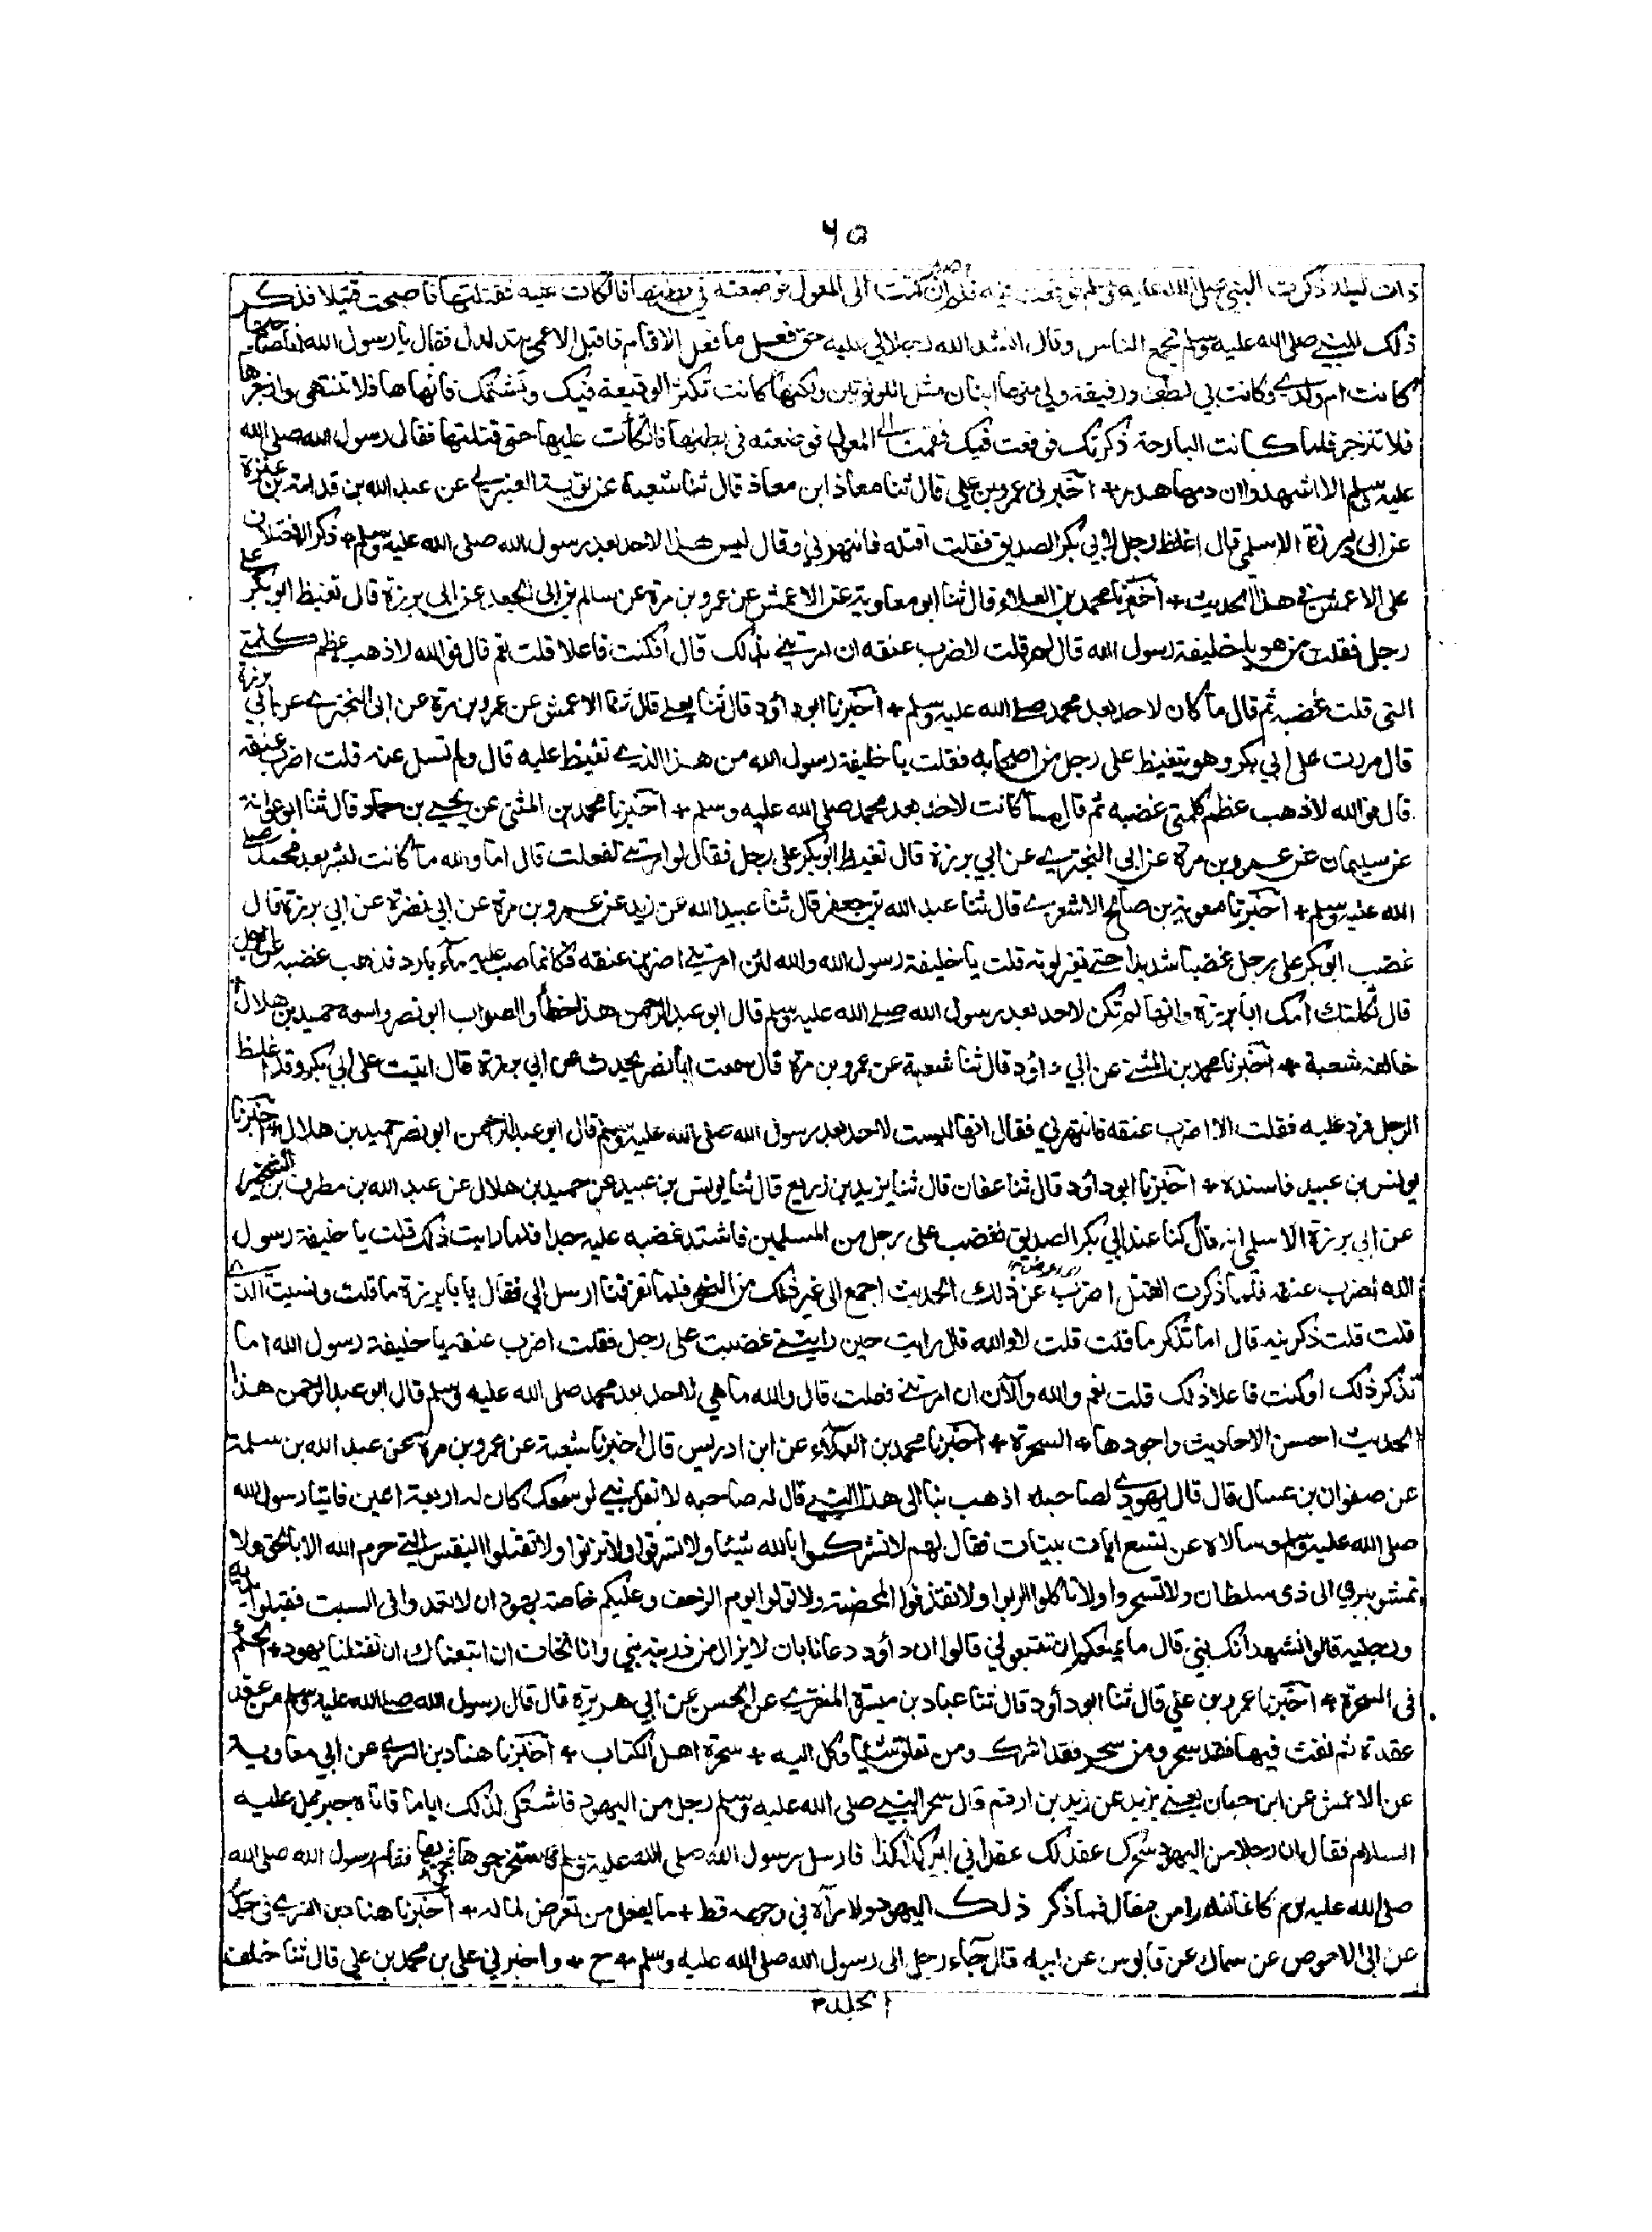 ٦٥
ذات ليلة ذكرت النبي صلى الله عليه وسلم فوقعت فيه فلم ان قمت الى المغول فوضعته في بطنها فاتكات عليه فقتلتها فاصبحت قتيلا فذكر
ذلك للنبي صلى الله عليه وسلم فجمع الناس وقال انشد الله رجلا لي عليه حق فعل ما فعل الا قام فاقبل الاعمى يتدلدل فقال يا رسول الله انا صاحبها
كانت ام ولدي وكانت بي لطيفة رفيقة ولي منها ابنان مثل اللؤلوتين ولكنها كانت تكثر الوقيعة فيك وتشتمك فانهاها فلا تنتهي وازجرها
فلا تنزجر فلما كانت البارحة ذكرتك فوقعت فيك فقمت الى المغول فوضعته في بطنها فاتكات عليها حتى قتلتها فقال رسول الله صلى الله
عليه وسلم الا اشهدوا ان دمها هدر + اخبرني عمرو بن علي قال ثنا معاذ ابن معاذ قال ثنا شعبة عن توبة العنبري عن عبد الله بن قدامة بن عنزة
عن ابي برزة الاسلمي قال اغلظ رجل لابي بكر الصديق فقلت اقتله فانتهرني وقال ليس هذا لاحد بعد رسول الله صلى الله عليه وسلم + ذكر الاختلاف
على الاعمش في هذا الحديث + اخبرنا محمد بن العلاء قال ثنا ابو معاوية عن الاعمش عن عمرو بن مرة عن سالم بن ابي الجعد عن ابي برزة قال تغيظ ابو بكر على
رجل فقلت من هو يا خليفة رسول الله قال لم قلت لاضرب عنقه ان امرتني بذلك قال افكنت فاعلا قلت نعم قال فوالله لاذهب عظم كلمتي
التي قلت غضبه ثم قال ما كان لاحد بعد محمد صلى الله عليه وسلم + اخبرنا ابو داؤد قال ثنا يعلى قال ثنا الاعمش عن عمرو بن مرة عن ابي البختري عن ابي برزة
قال مررت على ابي بكر وهو يتغيظ على رجل من اصحابه فقلت يا خليفة رسول الله من هذا الذي تغيظ عليه قال ولم تسل عنه قلت اضرب عنقه
قال فوالله لاذهب عظم كلمتي غضبه ثم قال ما كانت لاحد بعد محمد صلى الله عليه وسلم + اخبرنا محمد بن المثنى عن يحيى بن حماد قال ثنا ابو عوانة
عن سليمان عن عمرو بن مرة عن ابي البختري عن ابي برزة قال تغيظ ابو بكر على رجل فقال لو امرتني لفعلت قال اما والله ما كانت لبشر بعد محمد صلى
الله عليه وسلم + اخبرنا معوية بن صالح الاشعري قال ثنا عبد الله بن جعفر قال ثنا عبيد الله عن زيد عن عمرو بن مرة عن ابي نضرة عن ابي برزة قال
غضب ابو بكر على رجل غضبا شديدا حتى تغير لونه قلت يا خليفة رسول الله والله لئن امرتني لاضربن عنقه فكانما صب عليه ماء بارد فذهب غضبه عن الرجل
قال ثكلتك امك ابا برزة وانها لم تكن لاحد بعد رسول الله صلى الله عليه وسلم قال ابو عبد الرحمن هذا خطأ والصواب ابو نصر واسمه حميد بن هلال
خالفه شعبة + اخبرنا محمد بن المثنى عن ابي داؤد قال ثنا شعبة عن عمرو بن مرة قال سمعت ابا نصر يحدث عن ابي برزة قال اتيت على ابي بكر وقد اغلظ
الرجل فرد عليه فقلت الا اضرب عنقه فانتهرني فقال انها ليست لاحد بعد رسول الله صلى الله عليه وسلم قال ابو عبد الرحمن ابو نصر حميد بن هلال + اخبرنا
يونس بن عبيد فاسنده + اخبرنا ابو داؤد قال ثنا عفان قال ثنا يزيد بن زريع قال ثنا يونس بن عبيد عن حميد بن هلال عن عبد الله بن مطرف بن الشخير
عن ابي برزة الاسلمي انه قال كنا عند ابي بكر الصديق فغضب على رجل من المسلمين فاشتد غضبه عليه جدا فلما رايت ذلك قلت يا خليفة رسول
الله اضرب عنقه فلما ذكرت القتل اضرب عن ذلك الحديث اجمع الى غير ذلك من النحو فلما تفرقنا ارسل الي فقال يا با برزة ما قلت ونسيت الذي
قلت قلت ذكرنيه قال اما تذكر ما قلت قلت لا والله قال رايت حين رايتني غضبت على رجل فقلت اضرب عنقه يا خليفة رسول الله اما
تذكر ذلك او كنت فاعلا ذلك قلت نعم والله والآن ان امرتني فعلت قال والله ما هي لاحد بعد محمد صلى الله عليه وسلم قال ابو عبد الرحمن هذا
الحديث احسن الاحاديث واجودها + السحرة + اخبرنا محمد بن العلاء عن ابن ادريس قال اخبرنا شعبة عن عمرو بن مرة عن عبد الله بن سلمة
عن صفوان بن عسال قال قال يهودي لصاحبه اذهب بنا الى هذا النبي قال له صاحبه لا تقل نبي لو سمعك كان له اربعة اعين فاتيا رسول الله
صلى الله عليه وسلم وسالاه عن تسع ايات بينات فقال لهم لا تشركوا بالله شيئا ولا تسرقوا ولا تزنوا ولا تقتلوا النفس التي حرم الله الا بالحق ولا
تمشوا ببري الى ذي سلطان ولا تسحروا ولا تاكلوا الربوا ولا تقذفوا المحصنة ولا تولوا يوم الزحف وعليكم خاصة يهود ان لا تعدوا في السبت فقبلوا يديه
ورجليه قالوا نشهد انك نبي قال ما يمنعكم ان تتبعوني قالوا ان داؤد دعا بان لا يزال من ذريته نبي وانا نخاف ان اتبعناك ان تقتلنا يهود + الحكم
في السحرة + اخبرنا عمرو بن علي قال ثنا ابو داؤد قال ثنا عباد بن ميسرة المنقري عن الحسن عن ابي هريرة قال قال رسول الله صلى الله عليه وسلم من عقد
عقدة ثم نفث فيها فقد سحر ومن سحر فقد اشرك ومن تعلق شيئا وكل اليه + سحرة اهل الكتاب + اخبرنا هناد بن السري عن ابي معاوية
عن الاعمش عن ابن حيان يعني يزيد عن زيد بن ارقم قال سحر النبي صلى الله عليه وسلم رجل من اليهود فاشتكى لذلك اياما فاتاه جبريل عليه
السلام فقال ان رجلا من اليهود سحرك عقد لك عقدا في بئر كذا كذا فارسل رسول الله صلى الله عليه وسلم فاستخرجوها فجئ بها فقام رسول الله صلى الله
صلى الله عليه وسلم كانما نشط من عقال فما ذكر ذلك اليهود ولا رآه في وجهه قط + ما يفعل من تعرض لماله + اخبرنا هناد بن السري في حديثه
عن ابي الاحوص عن سماك عن قابوس عن ابيه قال جاء رجل الى رسول الله صلى الله عليه وسلم + ح + واخبرني علي بن محمد بن علي قال ثنا خلف
الجلد٣